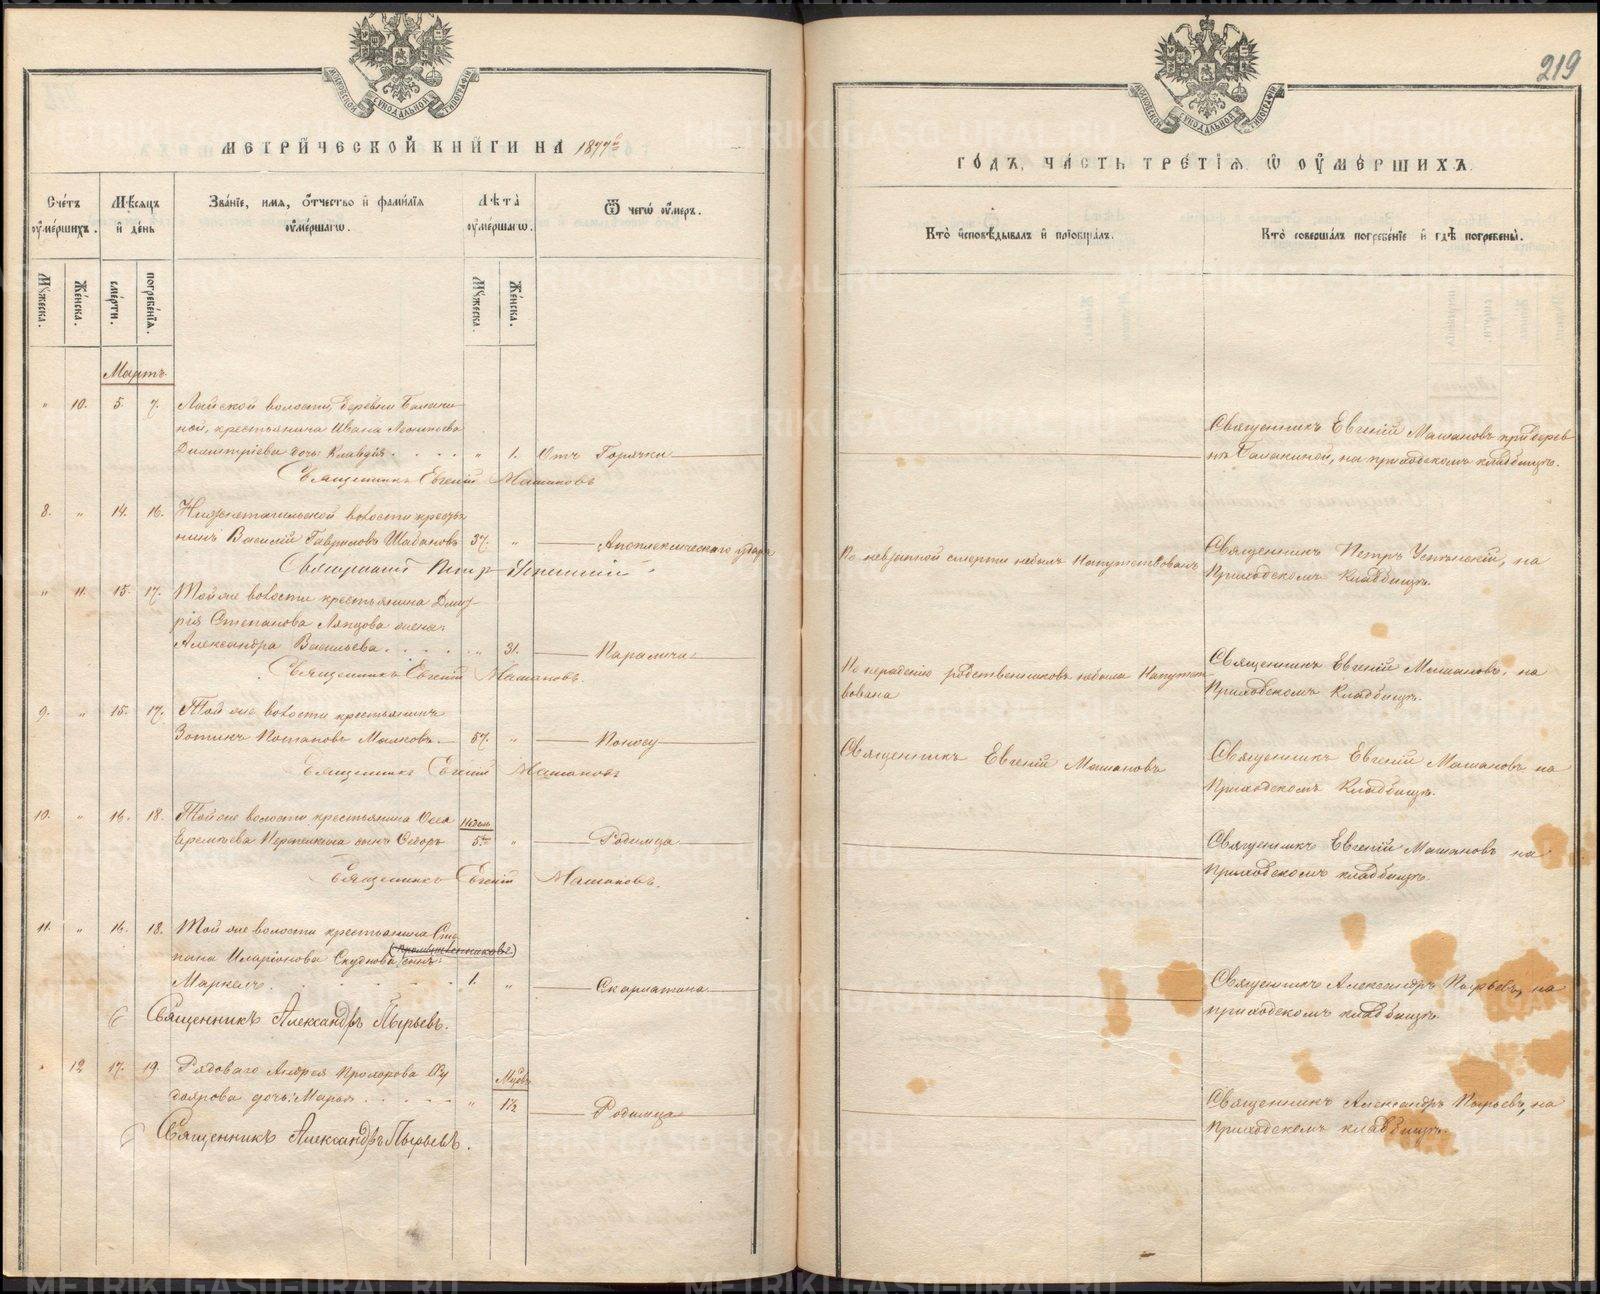 219
МОСКОВСКОЙ СѴНОДАЛЬНОЙ ТИПОГРАФІИ
МОСКОВСКОЙ СѴНОДАЛЬНОЙ ТИПОГРАФІИ
МЕТРИЧЕСКОЙ КНИГИ НА 1877й
Счетъ умершихъ.
Мѣсяцъ и день
Званіе, имя, отчество и фамилія умершагѡ.
Лѣта умершагѡ.
Ѿ чегѡ умеръ.
Мужеска.
Женска.
смерти.
погребенія.
Мужеска.
Женска.
Мартъ.
" 10. 5. 7. Лайской волости, деревни Балаки-
ной, крестьянина Ивана
Димитріева дочь: Клавдія . . . . " 1. Отъ Горячки
Священникъ Евгеній Машановъ
8. " 14. 16. Нижнетагильской волости кресть
нинъ Василій Гавриловъ Шабановъ 37. " Апоплексическаго удара
Священникъ Петръ Успенскій.
" 11. 15. 17. Той же волости крестьянина Дмит-
рія Степанова Ляпцова жена:
Александра Васильева. . . . . " 31. Паралича
Священникъ Евгеній Машановъ.
9. " 15. 17. Той же волости крестьянинъ
Зотикъ Потаповъ 57. " Поносу
Священникъ Евгеній Машановъ
10. " 16. 18. Той же волости крестьянина
сынъ 5 " Родимца
Священникъ Евгеній Машановъ.
11. " 16. 18. Той же волости крестьянина Сте
пана Иларіонова сынъ:
Маркелъ. . . . . 1. " Скарлатина
Священникъ Александръ Пырьевъ.
" 12 17. 19. Рядоваго Андрея Прохорова
доярова дочь: Марья . . . . " 1½ Родимца
Священникъ Александръ Пырьевъ.
ГОДЪ, ЧАСТЬ ТРЕТІЯ, Ѡ УМЕРШИХЪ.
Кто исповѣдывалъ и пріобщалъ.
Кто совершалъ погребеніе и гдѣ погребены.
Священникъ Евгеній Машановъ при дерев
нѣ Балакиной, на приходскомъ кладбищѣ.
По невзапной смерти небылъ Напутствованъ
Священникъ Петръ Успенскій, на
Приходскомъ Кладбищѣ.
По нерадению родственниковъ небыла Напутст-
вована
Священникъ Евгеній Машановъ, на
Приходскомъ Кладбищѣ.
Священникъ Евгеній Машановъ
Священникъ Евгеній Машановъ на
Приходскомъ Кладбищѣ.
Священникъ Евгеній Машановъ на
Приходскомъ кладбищѣ.
Священникъ Александръ Пырьевъ, на
приходскомъ кладбищѣ.
Священникъ Александръ Пырьевъ, на
Приходскомъ кладбищѣ.
METRIKI.GASO-URAL.RU